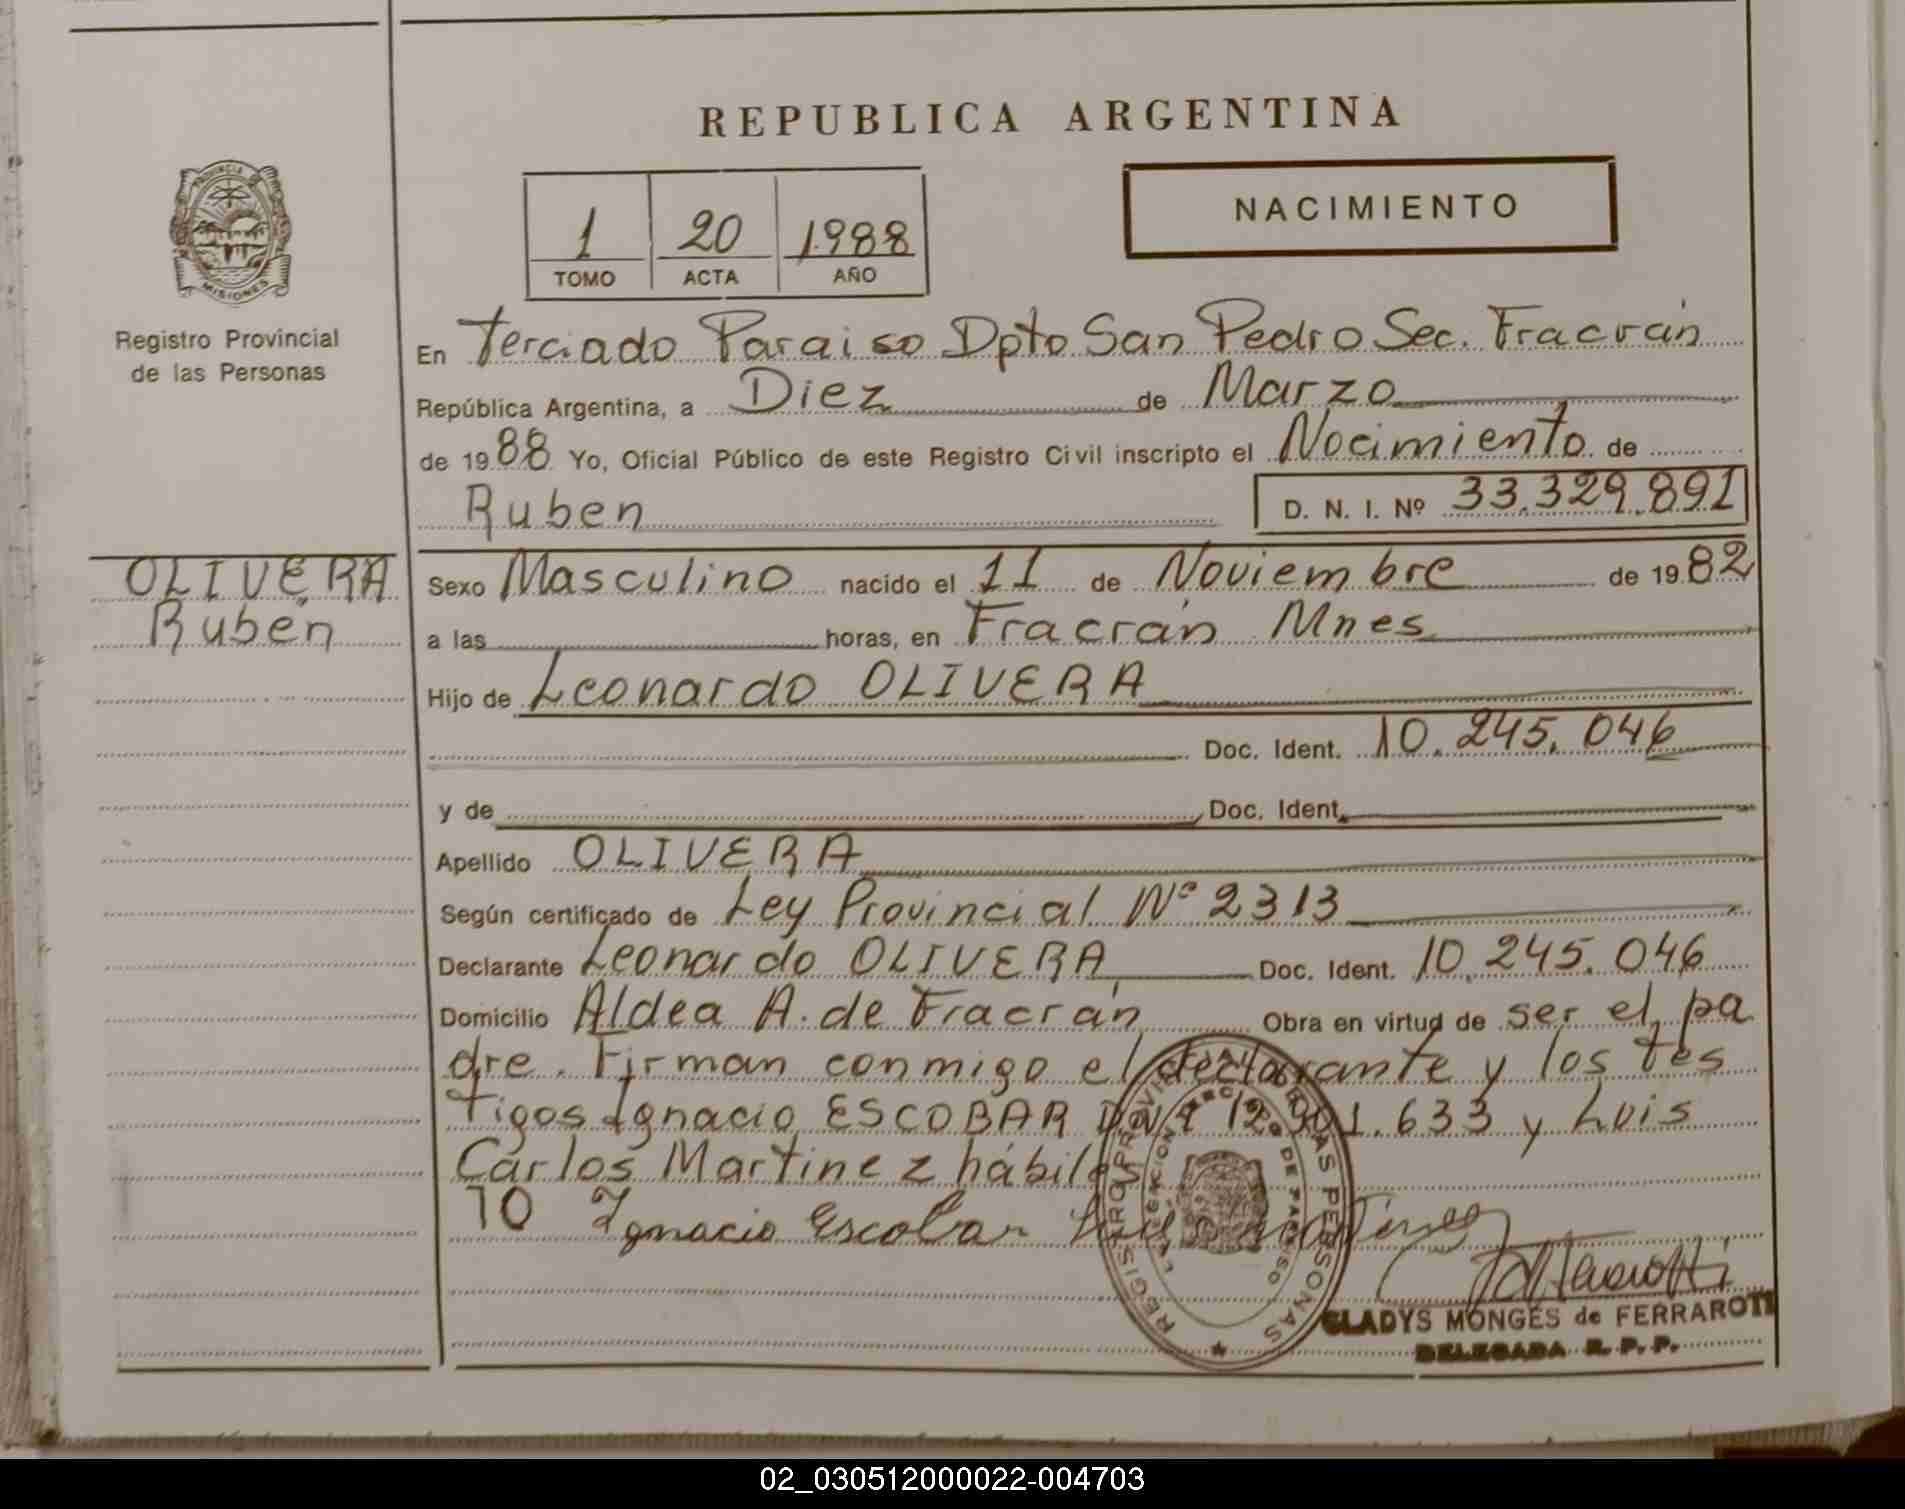 REPUBLICA ARGENTINA
PROVINCIA DE
MISIONES
Registro Provincial
de las Personas
1 20 1988
TOMO ACTA AÑO
NACIMIENTO
En Terciado Paraiso Dpto San Pedro Sec. Fracrán
República Argentina, a Diez de Marzo
de 1988 Yo, Oficial Público de este Registro Civil inscripto el Nacimiento de
Ruben D. N. I. Nº 33.329.891
OLIVERA
Ruben
Sexo Masculino nacido el 11 de Noviembre de 1982
a las horas, en Fracrán Mnes
Hijo de Leonardo OLIVERA
Doc. Ident. 10.245.046
y de Doc. Ident.
Apellido OLIVERA
Según certificado de Ley Provincial Nº 2313
Declarante Leonardo OLIVERA Doc. Ident. 10.245.046
Domicilio Aldea A. de Fracrán Obra en virtud de ser el pa
dre. Firman conmigo el declarante y los tes
tigos Ignacio ESCOBAR DNI 12.901.633 y Luis
Carlos Martinez hábiles
Ignacio Escobar Luis Martinez
REGISTRO PROVINCIAL DE LAS PERSONAS
GLADYS MONGES de FERRAROTI
DELEGADA R. P. P.
02_030512000022-004703